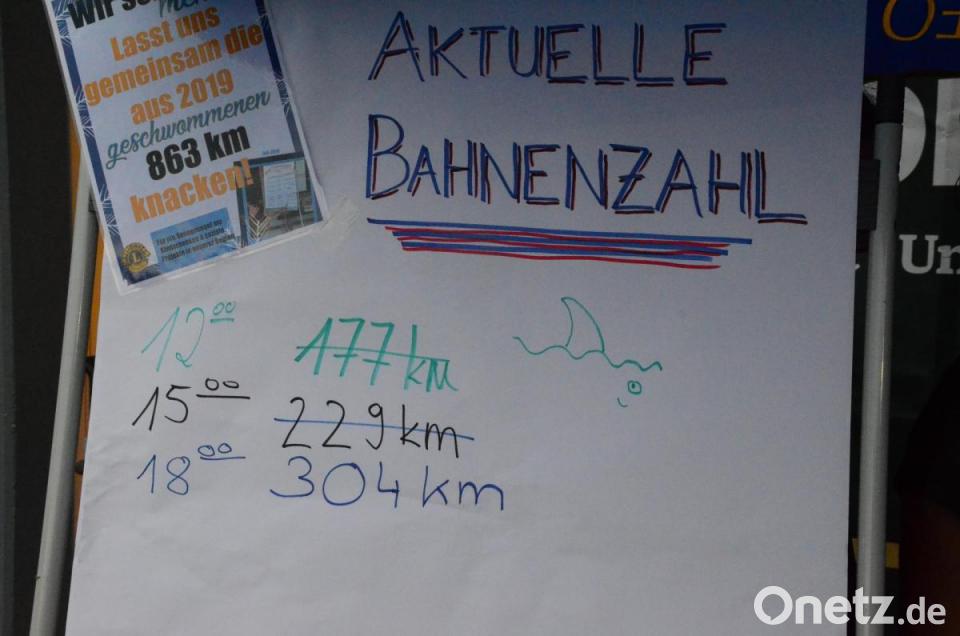 Lasst uns
gemeinsam die
aus 2019
geschwommenen
863 km
knacken!
AKTUELLE
BAHNENZAHL
12⁰⁰ 177 km
15⁰⁰ 229 km
18⁰⁰ 304 km
Un
Onetz.de